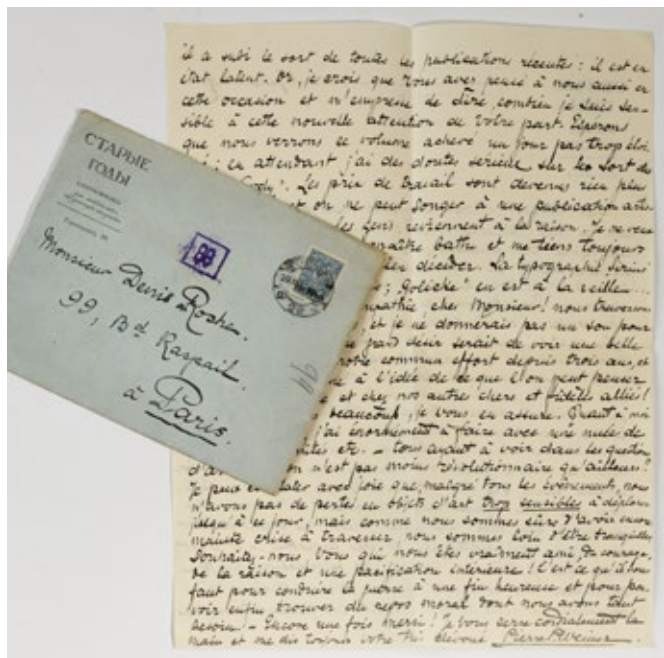 il a subi le sort de toutes les publications récentes : il est en
état latent. Or, je crois que vous avez pensé à nous aussi en
cette occasion et m'empresse de dire, combien je suis sen-
sible à cette nouvelle attention de votre part. Espérons
que nous verrons ce volume achevé un jour pas trop éloi-
; en attendant j'ai des doutes sérieux sur le sort des
Les prix de travail sont devenus rien plus
et on ne peut songer à une publication artis-
les gens reviennent à la raison. Je ne veux
connaître battu et me tiens toujours
décider. La typographie Sirius
; "Golicke" en est à la veille...
sympathie, cher Monsieur! nous traversons
, et je ne donnerais pas un sou pour
grand désir serait de voir une belle
notre commun effort depuis trois ans, et
à l'idée de ce que l'on peut penser
et chez nos autres chers et fidèles alliés!
beaucoup, je vous en assure. Quant à moi
j'ai énormément à faire avec une nuée de
etc. – tous ayant à voir dans les questions
d'art n'est pas moins révolutionnaire qu'ailleurs!
Je peux constater avec joie que, malgré tous les événements, nous
n'avons pas de pertes en objets d'art trop sensibles à déplorer
jusqu'à ce jour, mais comme nous sommes sûrs d'avoir encore
mainte crise à traverser, nous sommes loin d'être tranquilles
Souhaitez-nous Vous qui nous êtes vraiment ami, du courage,
de la raison et une pacification intérieure! C'est ce qu'il nous
faut pour conduire la guerre à une fin heureuse et pour pou-
voir enfin trouver du repos moral dont nous avons tant
besoin. – Encore une fois merci! Je vous serre cordialement la
main et me dis toujours votre très dévoué Pierre P. Weiner.
СТАРЫЕ
ГОДЫ
Monsieur Denis Roche.
99, Bd Raspail.
à Paris.